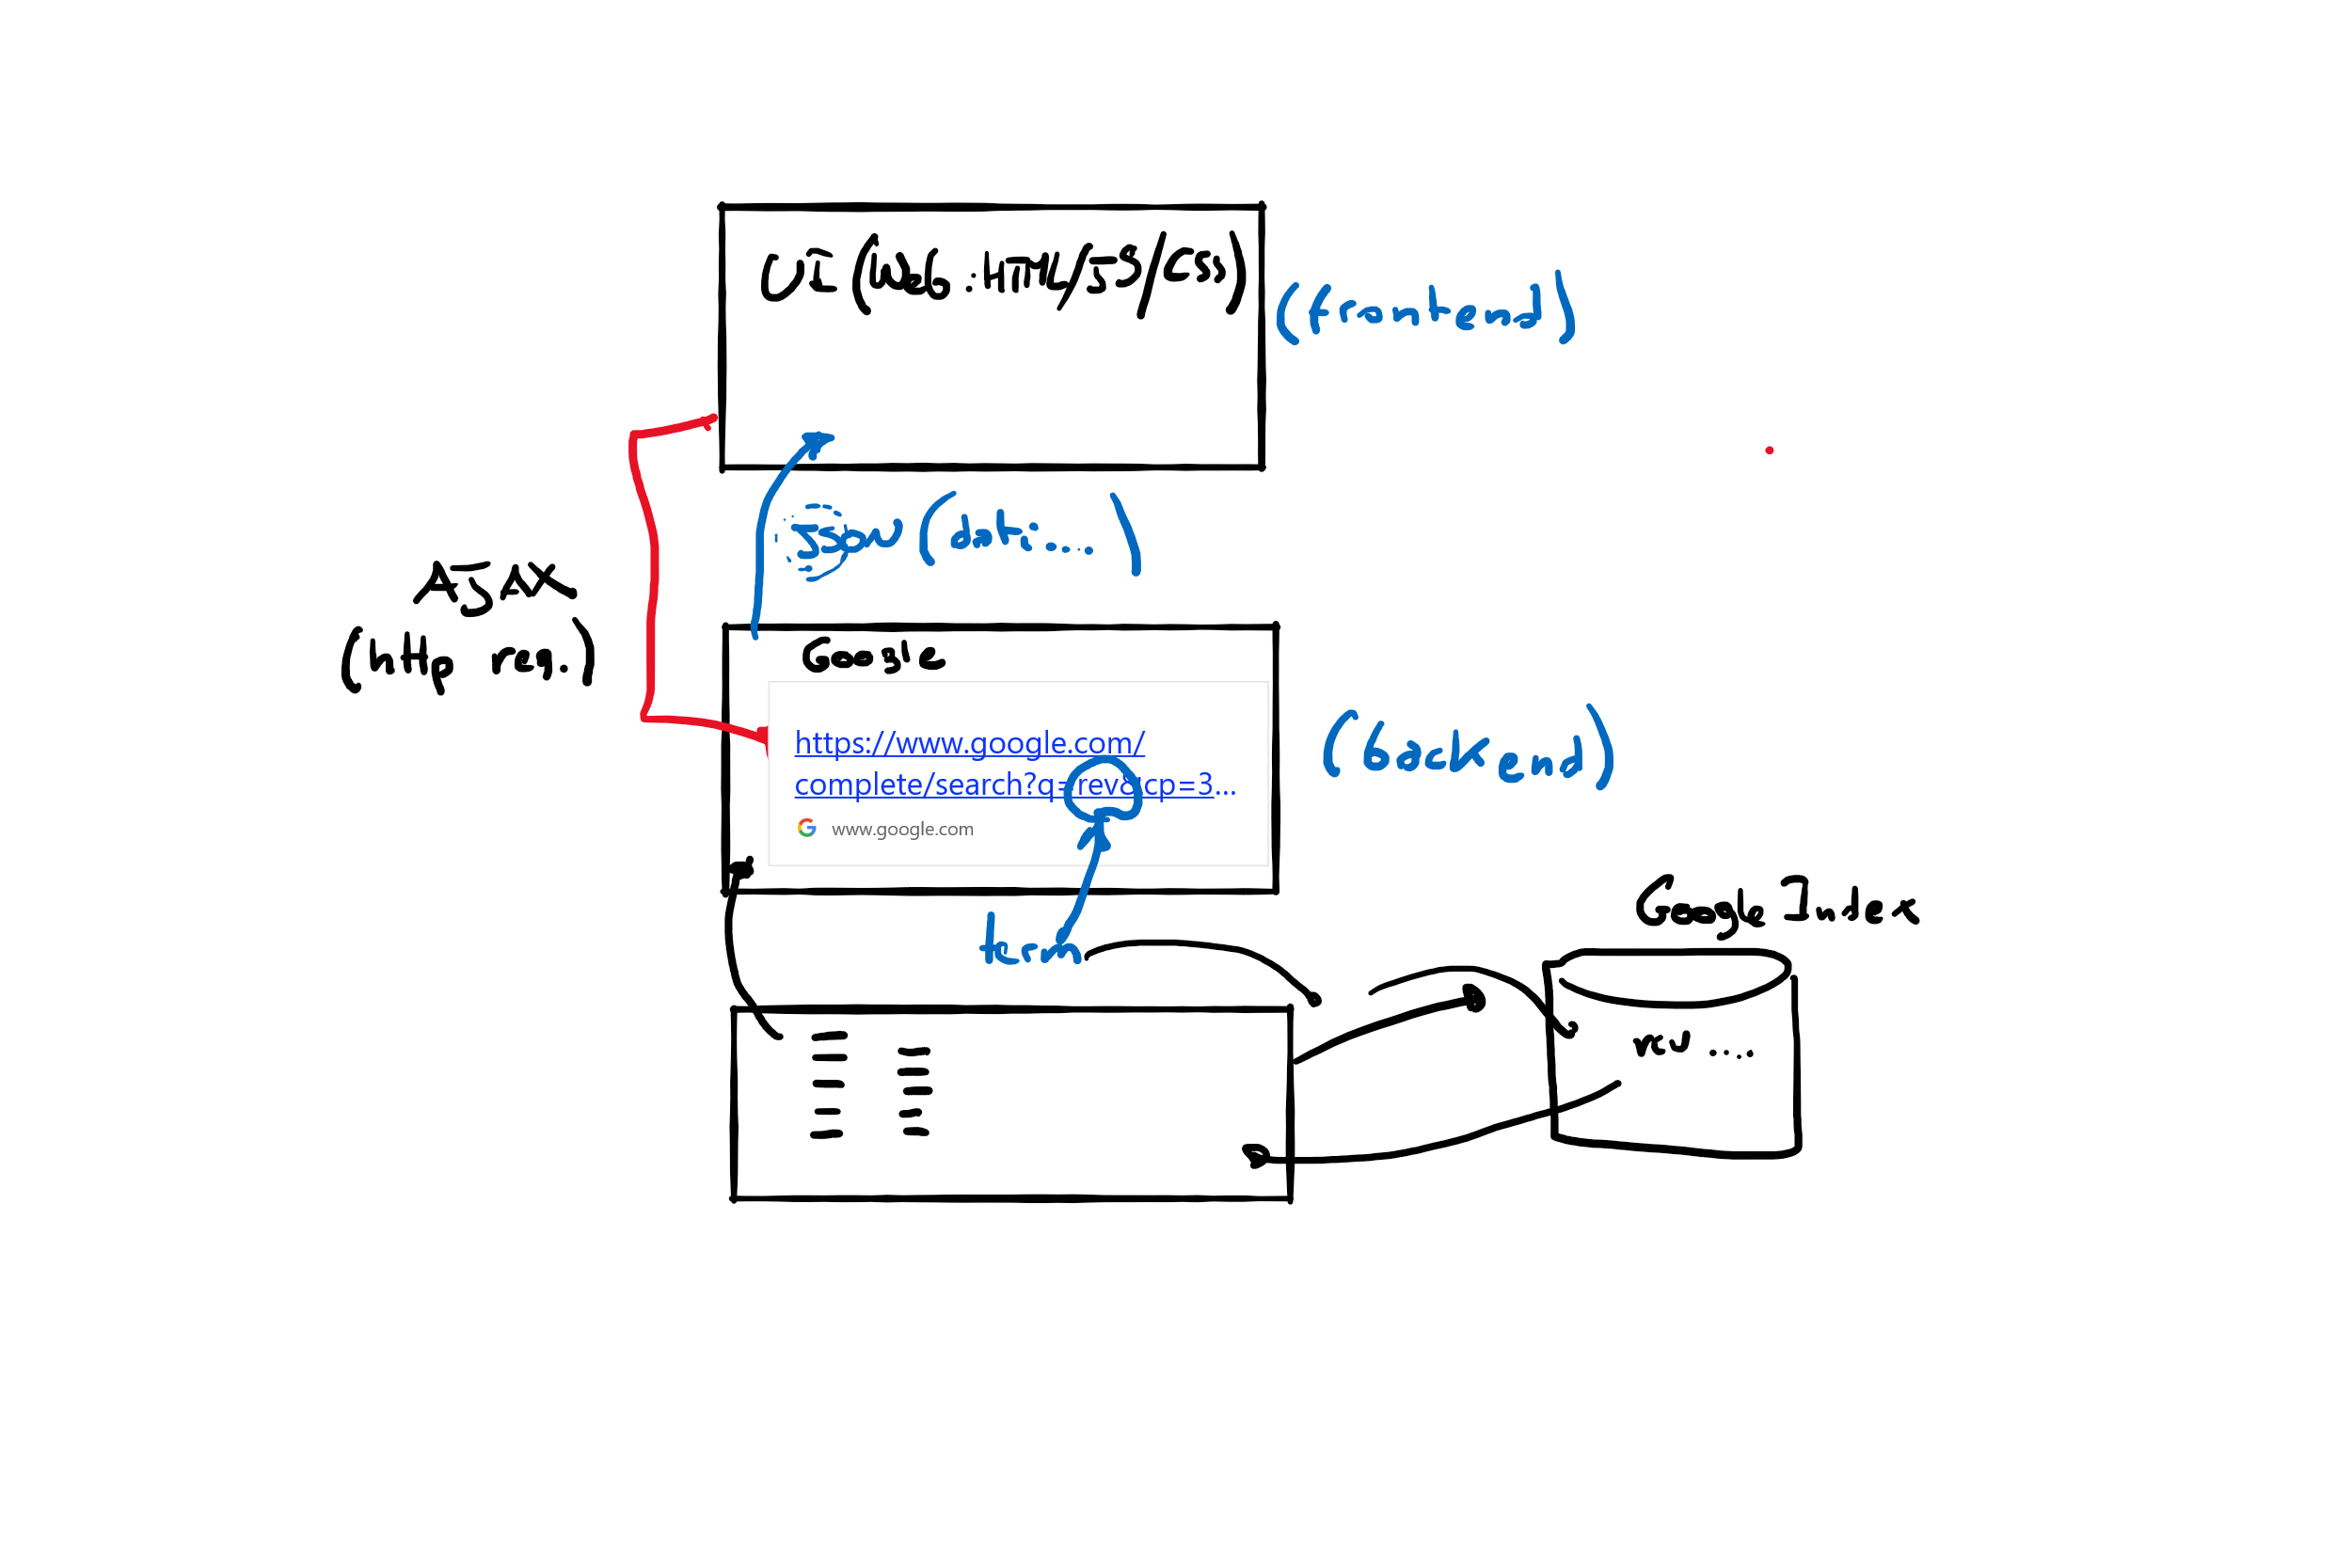 UI (Web: HTML/JS/CSS)
(frontend)
JSON (dati....)
AJAX
(http req.)
Google
https://www.google.com/
complete/search?q=rev&cp=3...
www.google.com
(backend)
term
Google Index
rev ....